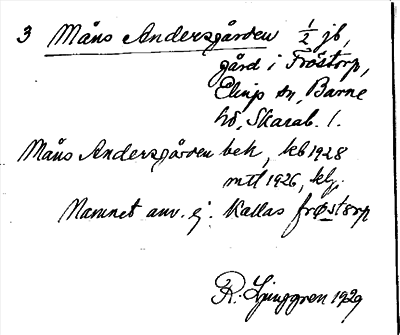 3 Måns Andersgården 1/2 jb,
gård i Fröstorp,
Elings sn, Barne
hd, Skarab. l.
Måns Andersgården beh, kb 1928
mtl 1926, klj.
Namnet anv. ej. Kallas frøstorp
R. Ljunggren 1929